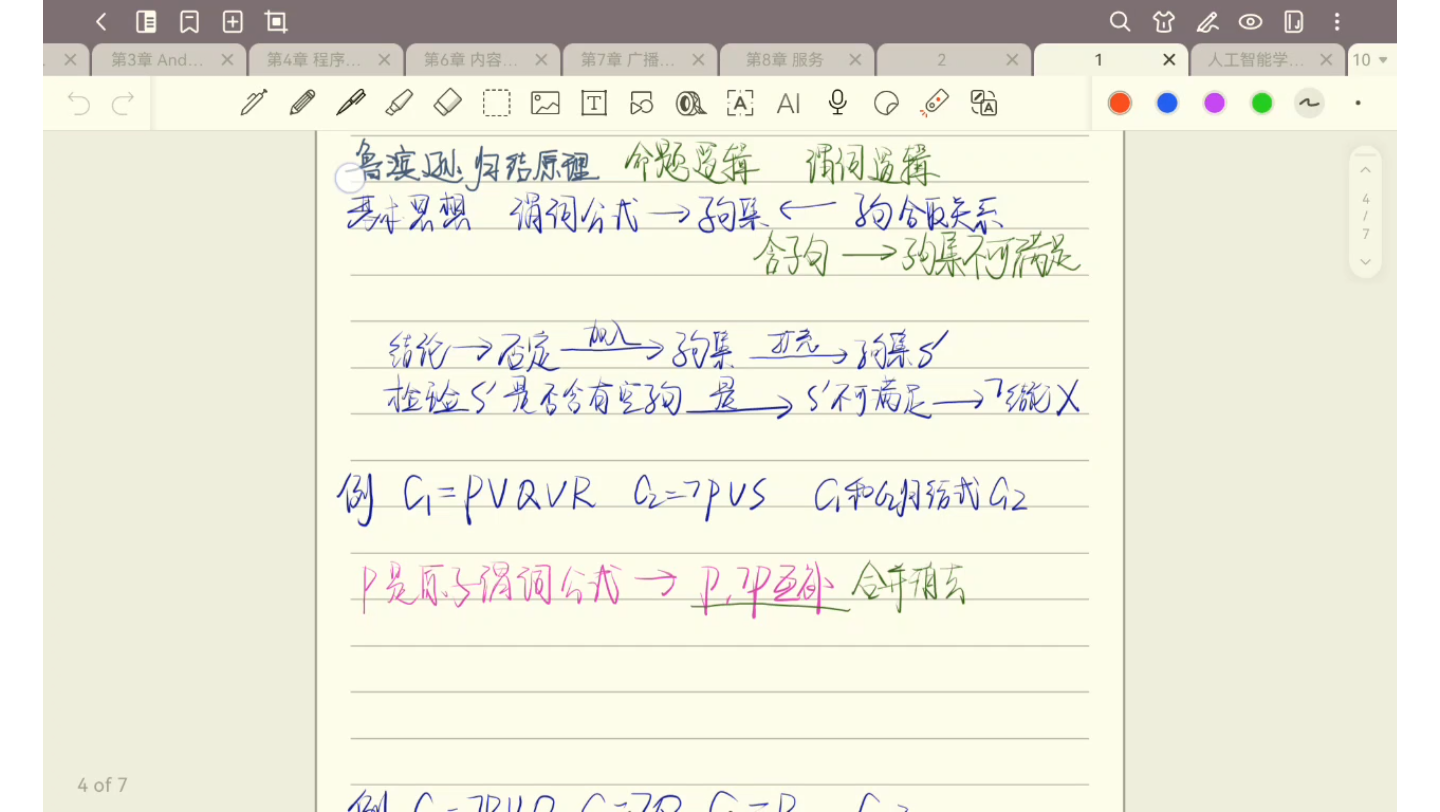 第3章 And... 第4章 程序... 第6章 内容... 第7章 广播... 第8章 服务 2 1 人工智能学... 10
T A AI A
鲁滨逊归结原理 命题逻辑 谓词逻辑
基本思想 谓词公式→子句集← 子句合取关系
含子句→子句集不可满足
结论→否定 加入→ 子句集 扩充→ 子句集S′
检验S′是否含有空子句 是→ S′不可满足→¬结论X
例 C₁=P∨Q∨R C₂=¬P∨S C₁和C₂归结式C₁₂
P是原子谓词公式→ P、¬P互补 合并消去
4
/
7
4 of 7